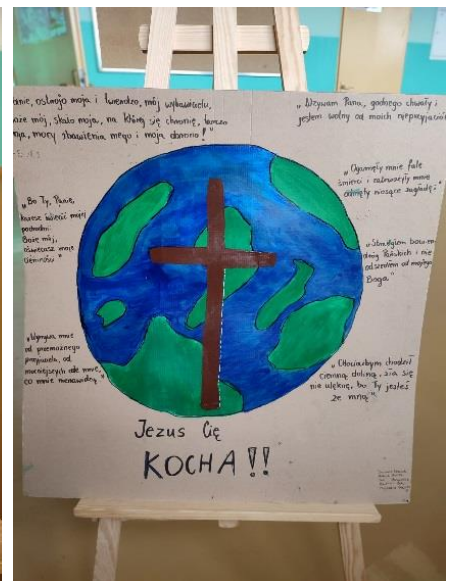 anie, ostojo moja i twierdzo, mój wybawicielu,
oże mój, skało moja, na którą się chronię, tarczo
ja, mocy zbawienia mego i moja obrono!"
„Wzywam Pana, godnego chwały i
jestem wolny od moich nieprzyjaciół
„Ogarnęły mnie fale
śmierci i zatrwożyły mnie
odmęty niosące zagładę;"
„Bo Ty, Panie,
każesz świecić mojej
pochodni:
Boże mój,
oświecasz moje
ciemności"
„Strzegłem bowiem
dróg Pańskich i nie
odszedłem od mojego
Boga"
„Wyrywa mnie
od przemożnego
przeciwnika, od
mocniejszych ode mnie,
co mnie nienawidzą."
„Chociażbym chodził
ciemną doliną, zła się
nie ulęknę, bo Ty jesteś
ze mną"
Jezus Cię
KOCHA!!